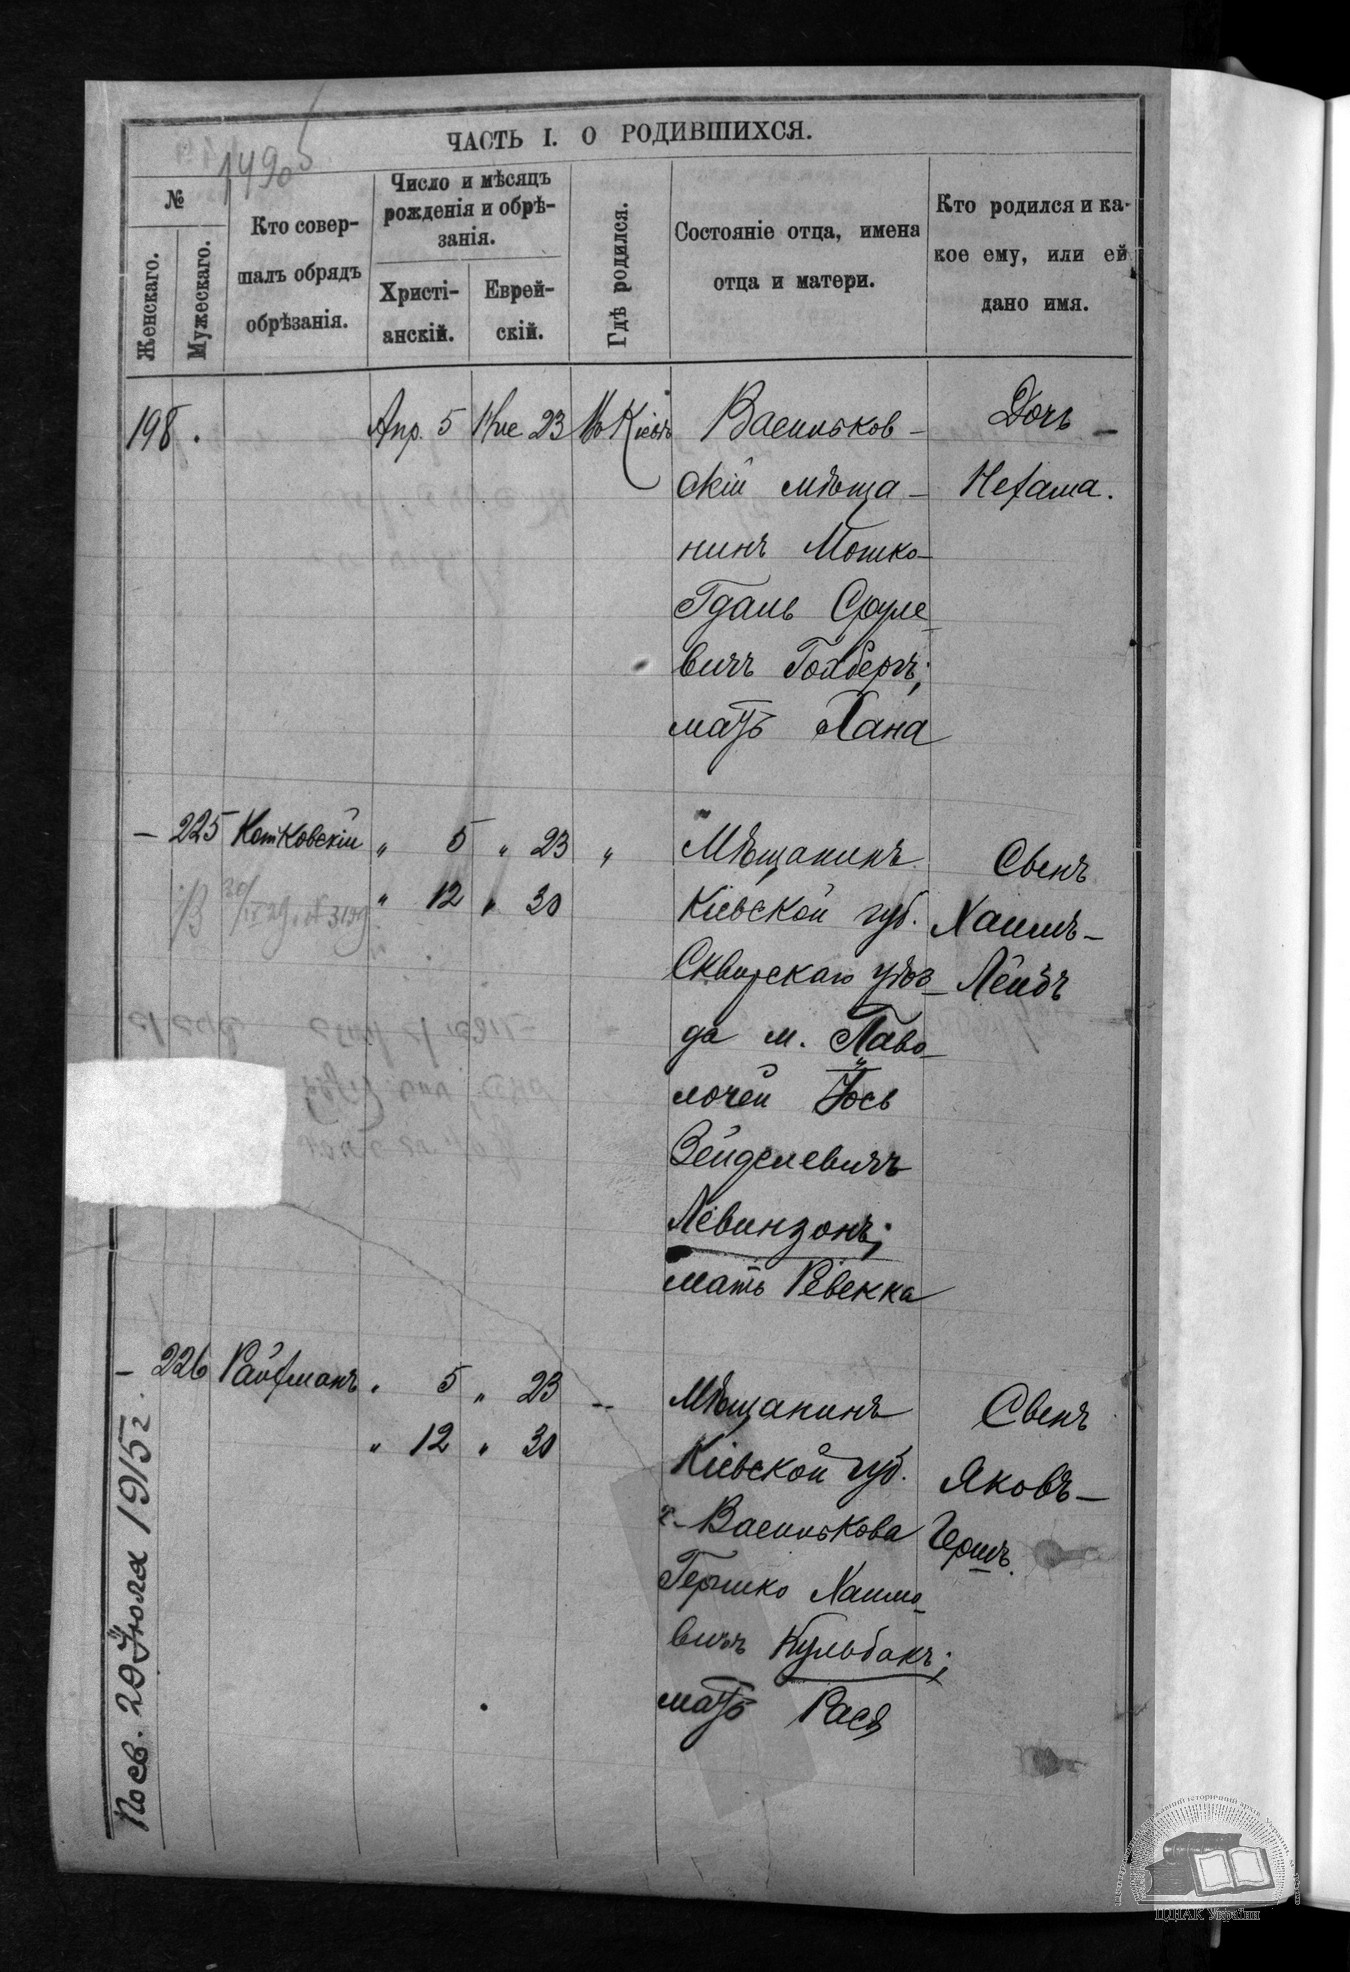 ЧАСТЬ I. О РОДИВШИХСЯ.
№
Женскаго.
Мужескаго.
Кто совер-
шалъ обрядъ
обрѣзанія.
Число и мѣсяцъ
рожденія и обрѣ-
занія.
Христі-
анскій.
Еврей-
скій.
Гдѣ родился.
Состояніе отца, имена
отца и матери.
Кто родился и ка-
кое ему, или ей
дано имя.
198.
Апр. 5
23
Въ Кіевѣ
Васильков-
скій мѣща-
нинъ Мошко-
Гдаль Сруле-
вичъ Гохбергъ;
мать Хана
Дочь -
Нехама.
- 225 Котковскій " 5 " 23 "
" 12 " 30
30/IV 29. № 3199
Мѣщанинъ
Кіевской губ.
Сквирскаго уѣз-
да м. Паво-
лочей Іось
Зейделевичъ
Левинзонъ;
мать Ревекка
Свенъ
Хаимъ-
Лейбъ
- 226 Райфманъ " 5 " 23 "
" 12 " 30
Мѣщанинъ
Кіевской губ.
г. Василькова
Гершко Хаимо-
вичъ Кульбакъ;
мать Рася
Свенъ
Яковъ-
Гершъ.
Посв. 20 Іюля 1915 г.
ЦДІАК України